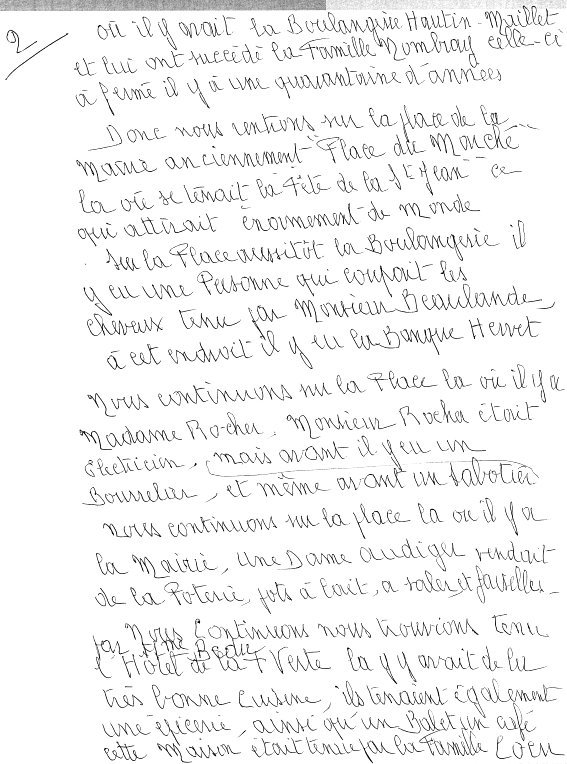 2
où il y avait la Boulangerie Hautin-Maillet
et lui ont succédé la Famille Mombray celle-ci
à fermé il y à une quarantaine d'années
Donc nous rentrons sur la place de la
Mairie anciennement "Place du Marché"
la où se tenait la Fête de la St Jean ce
qui attirait énormement de Monde
Sur la Place aussitôt la Boulangerie il
y eu une Personne qui coupait les
cheveux tenu par Monsieur Beaulande,
à cet endroit il y eu la Banque Hervet
Nous continuons sur la Place la où il y a
Madame Rocher, Monsieur Rocher était
électricien, mais avant il y eu un
Bourrelier, et même avant un sabotier
Nous continuons sur la place la où il y a
la Mairie, une Dame Audiger vendait
de la Poterie, pots à lait, a saler et faisselles.
Nous Continuons nous trouvions tenu
par Mme
l'Hôtel de la Verte la y avait de la
très bonne Cuisine, ils tenaient également
une épicerie, ainsi qu'un Balet un café
cette Maison était tenue par la Famille